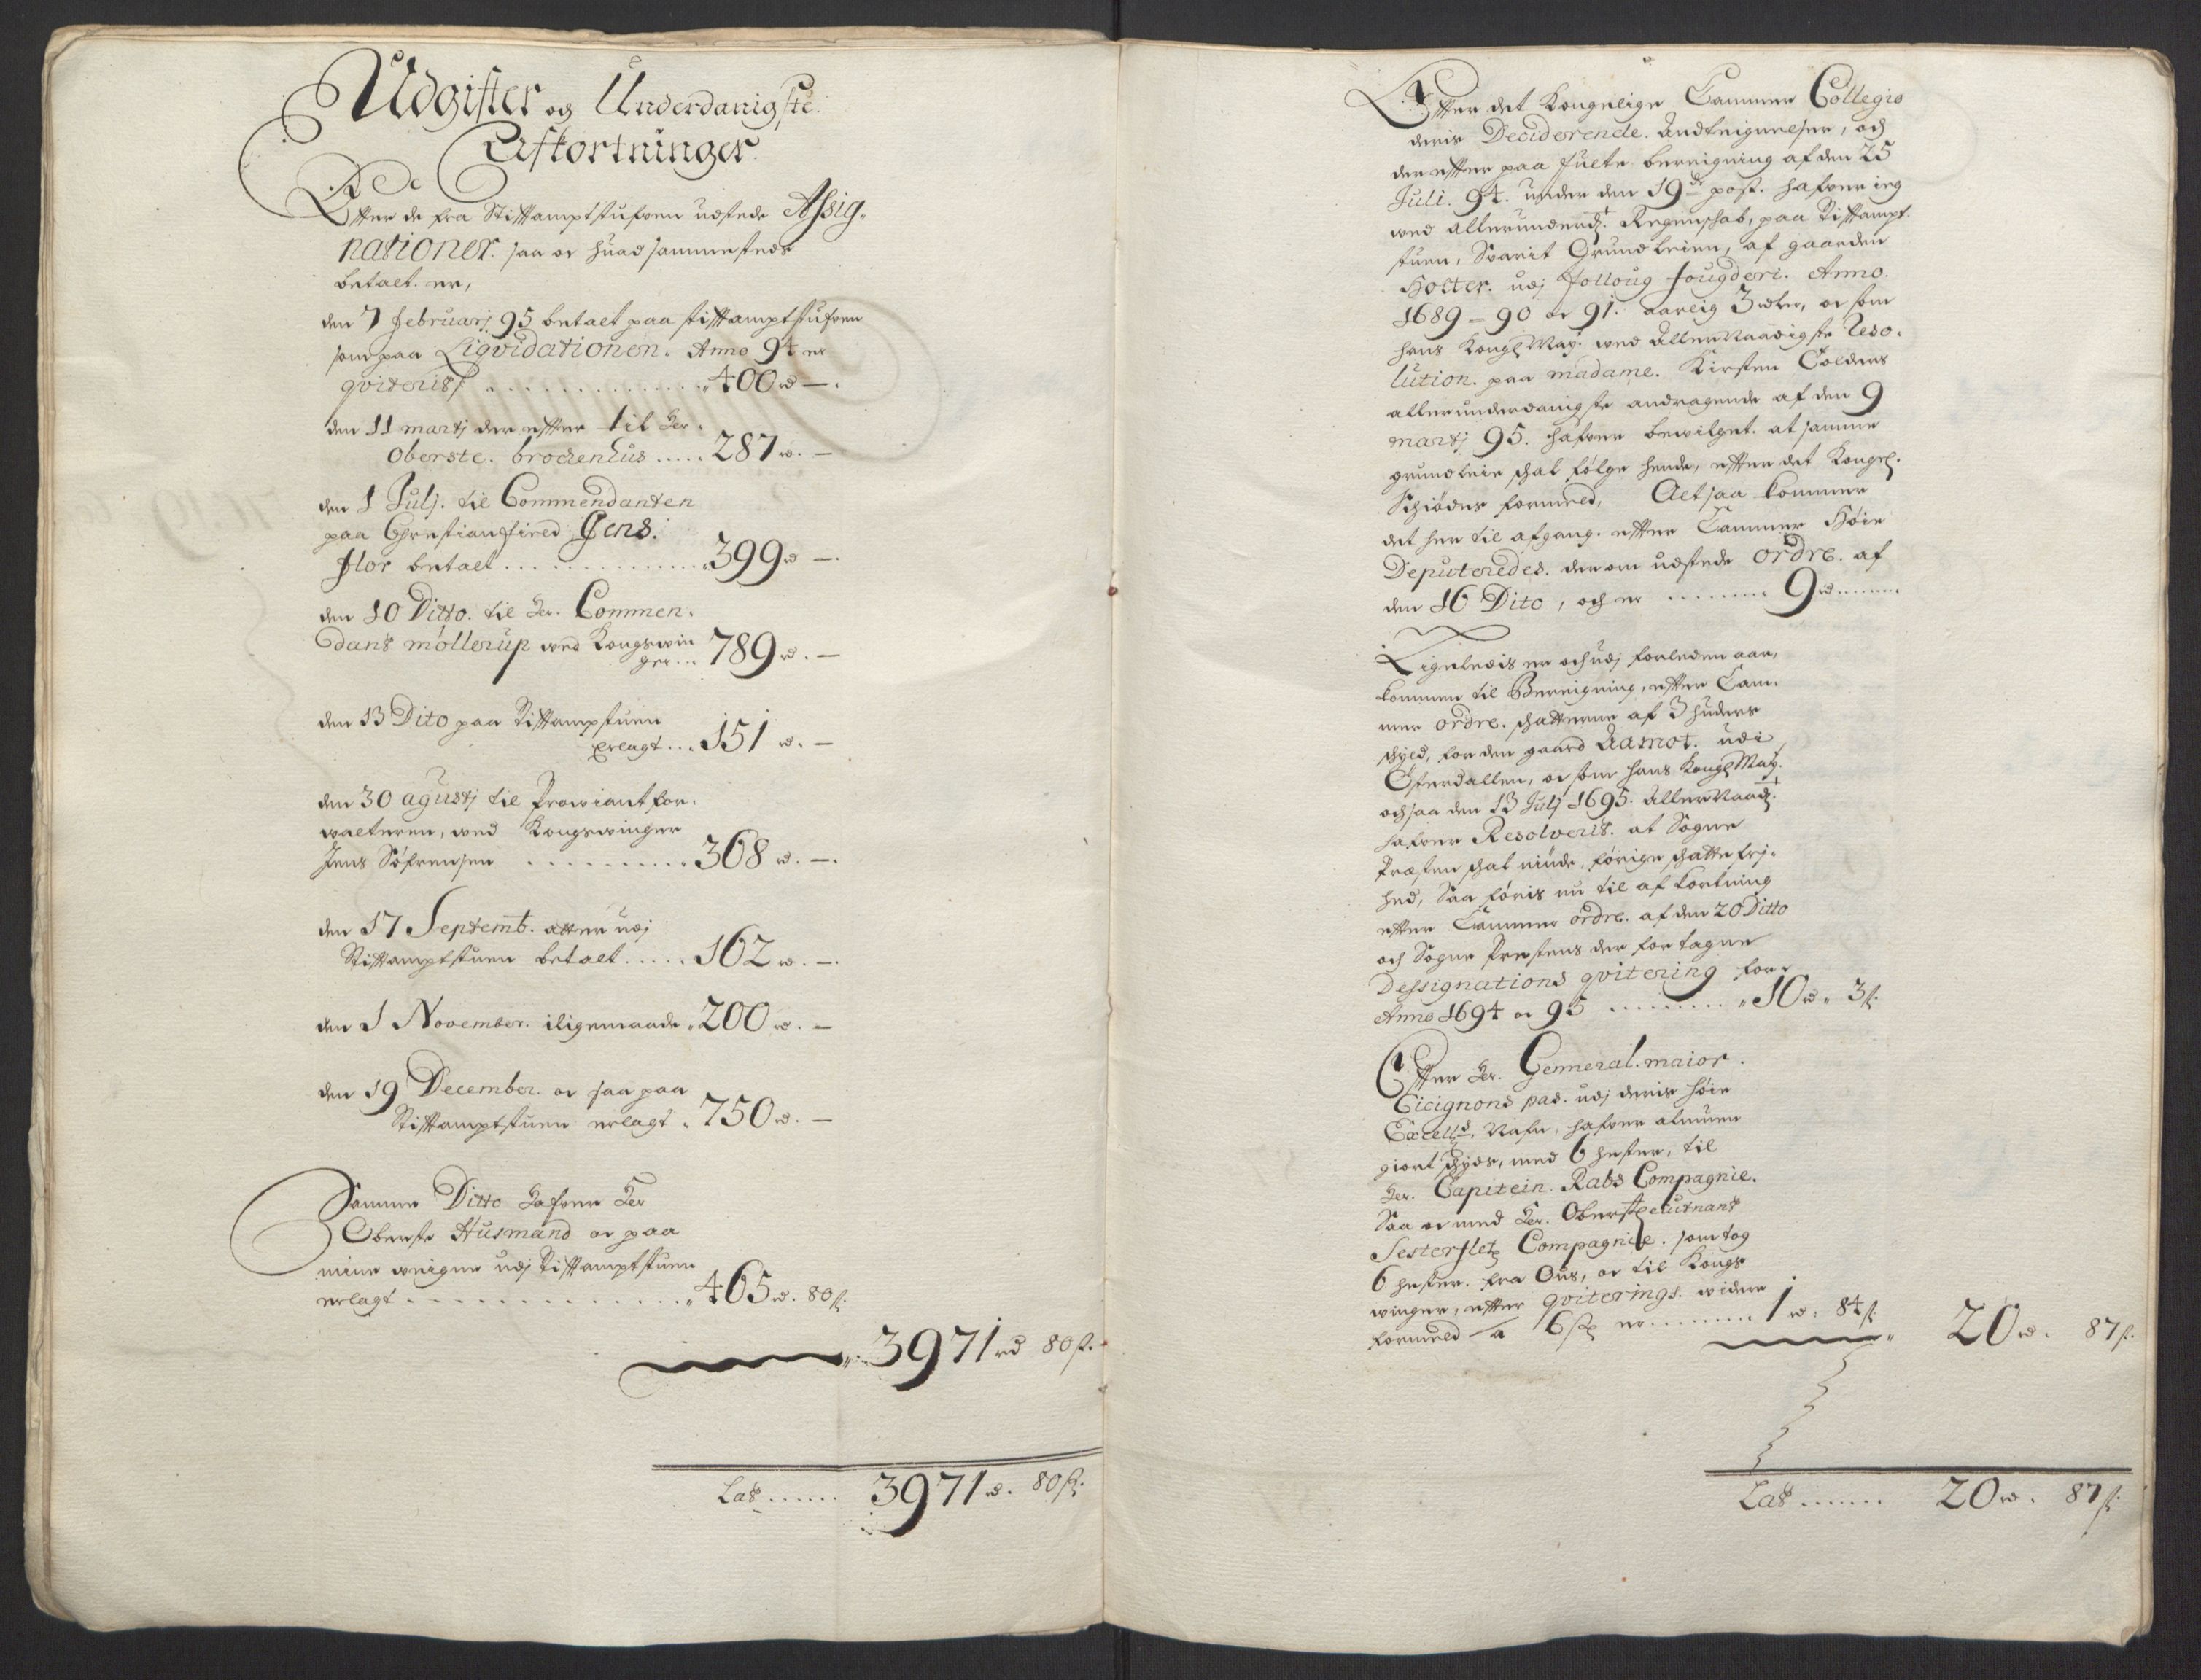 Udgifter og Underdanigste
Afkortninger
Efter de fra Stifftamptstufven udstede Assig-
nationer. saa or huad sammesteds
betalt. er,
den 7 Februarj 95 betalt paa stifftamptstufven
som paa Liqvidationen. Anno 94 er
qviterit / . . . . . . . . . . 400 rd —.
den 11 martj der effter til Hr.
Oberste. brockenhus ..... 287 rd. —
den 1 Julj. til Commendanten
paa Christiansfield Jens.
Flor betalt . . . . . . . . . . 399 rd —.
den 10 Ditto. til Hr. Commen-
dant möllerup wed Kongswin
ger ... 789 rd. —
den 13 Dito paa Stifftampstuen
Erlagt ... 151 rd. —
den 30 agustj til Proviantfor-
walteren, wed Kongswinger
Jens Söfrensen . . . . . . . . 368 rd. —.
den 17 Septemb. atter udj
Stifftamptstuen betalt ..... 162 rd. —.
den 1 November. iligemaade 200 rd. —
den 19 December. or saa paa
Stifftamptstuen erlagt . 750 rd. —
Samme Ditto Hafver Hr
Oberste Husmand or paa
mine weigne udj Stifftamptstuen
erlagt . . . . . . . . . . . . 465 rd. 80 s.
3971 rd 80 s.
Lat ...... 3971 rd. 80 s.
Efter det Kongelige Cammer Collegio
deris Deciderende. Andteignelser, och
der effter paa fulte bereigning af den 25
Juli. 94. under den 19de post. hafver ieg
wed allerunderd.t Regenschab, paa Stifftampt
stuen, Svarit Grundleien, af gaarden
Holter. udj Folloug fougderi. Anno.
1689 – 90 or 91. aarlig 3 rdlr, or som
hans Kongl May. wed AllerNaadigste Reso-
lution. paa madame. Kirsten Colders
allerunderdanigste andragende af den 9
martj 95. hafver bewilget. at samme
grundleie skal fölge hende, effter det Kongel.
Schiödes formeld, Altsaa kommer
det her til afgang. effter Cammer Höie
Deputeredes. der om udstede ordre. af
den 16 Dito, och er ........ 9 rd ......
Ligeledis er och udj forleden aar,
kommen til Bereigning, effter Cam-
mer ordre. skatterne af 3 huders
skyld, for den gaard Aamot. udi
Österdallen, or som hans Kongl May.
och saa den 13 Julj 1695. AllerNaad.t
hafver Resolverit. at Sogne
Præsten skal niude, förige skatte frj-
hed, Saa föris nu til af kortning
effter Cammer ordre. af den 20 Ditto
och Sogne Prestens der for tagne
Dessignations qvitering for
Anno 1694 or 95 ......... 10 rd. 3 s.
Efter Hr. Genneral. maior.
Cicignons pas. udj deris höie
Excell.s Nafn, hafver almuen
giort skyds, med 6 hester, til
Hr. Capitein. Rabs Compagnie.
Saa or med Hr. Oberstleutnant
Sesterflet Compagnie. som tog
6 hester. fra Ous, or til Kongs
winger, effter qviterings. widere
formeld a 16 s er ......... 1 rd. 84 s
20 rd. 87 s.
Lat ...... 20 rd. 87 s.